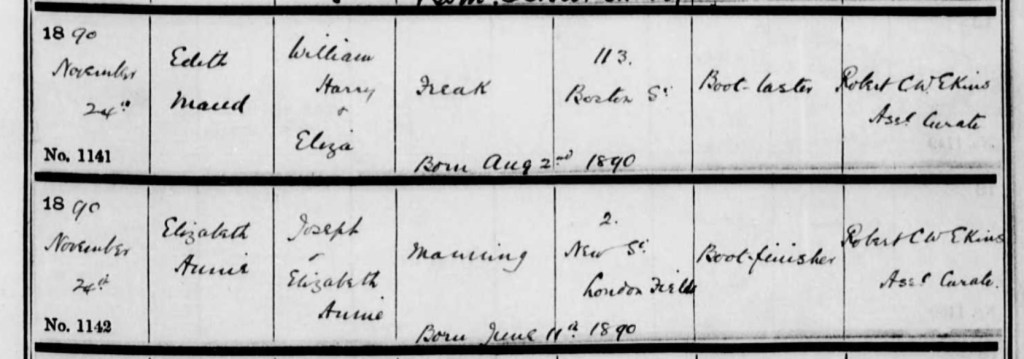 18 90
November
24th
No. 1141
Edith
Maud
William
Harry
&
Eliza
Freak
113.
Boston St
Boot-laster
Robert C W Ekins
Asst Curate
Born Aug 2nd 1890
18 90
November
24th
No. 1142
Elizabeth
Annie
Joseph
&
Elizabeth
Annie
Manning
2.
New St
London Fields
Boot-finisher
Robert C W Ekins
Asst Curate.
Born June 11th 1890